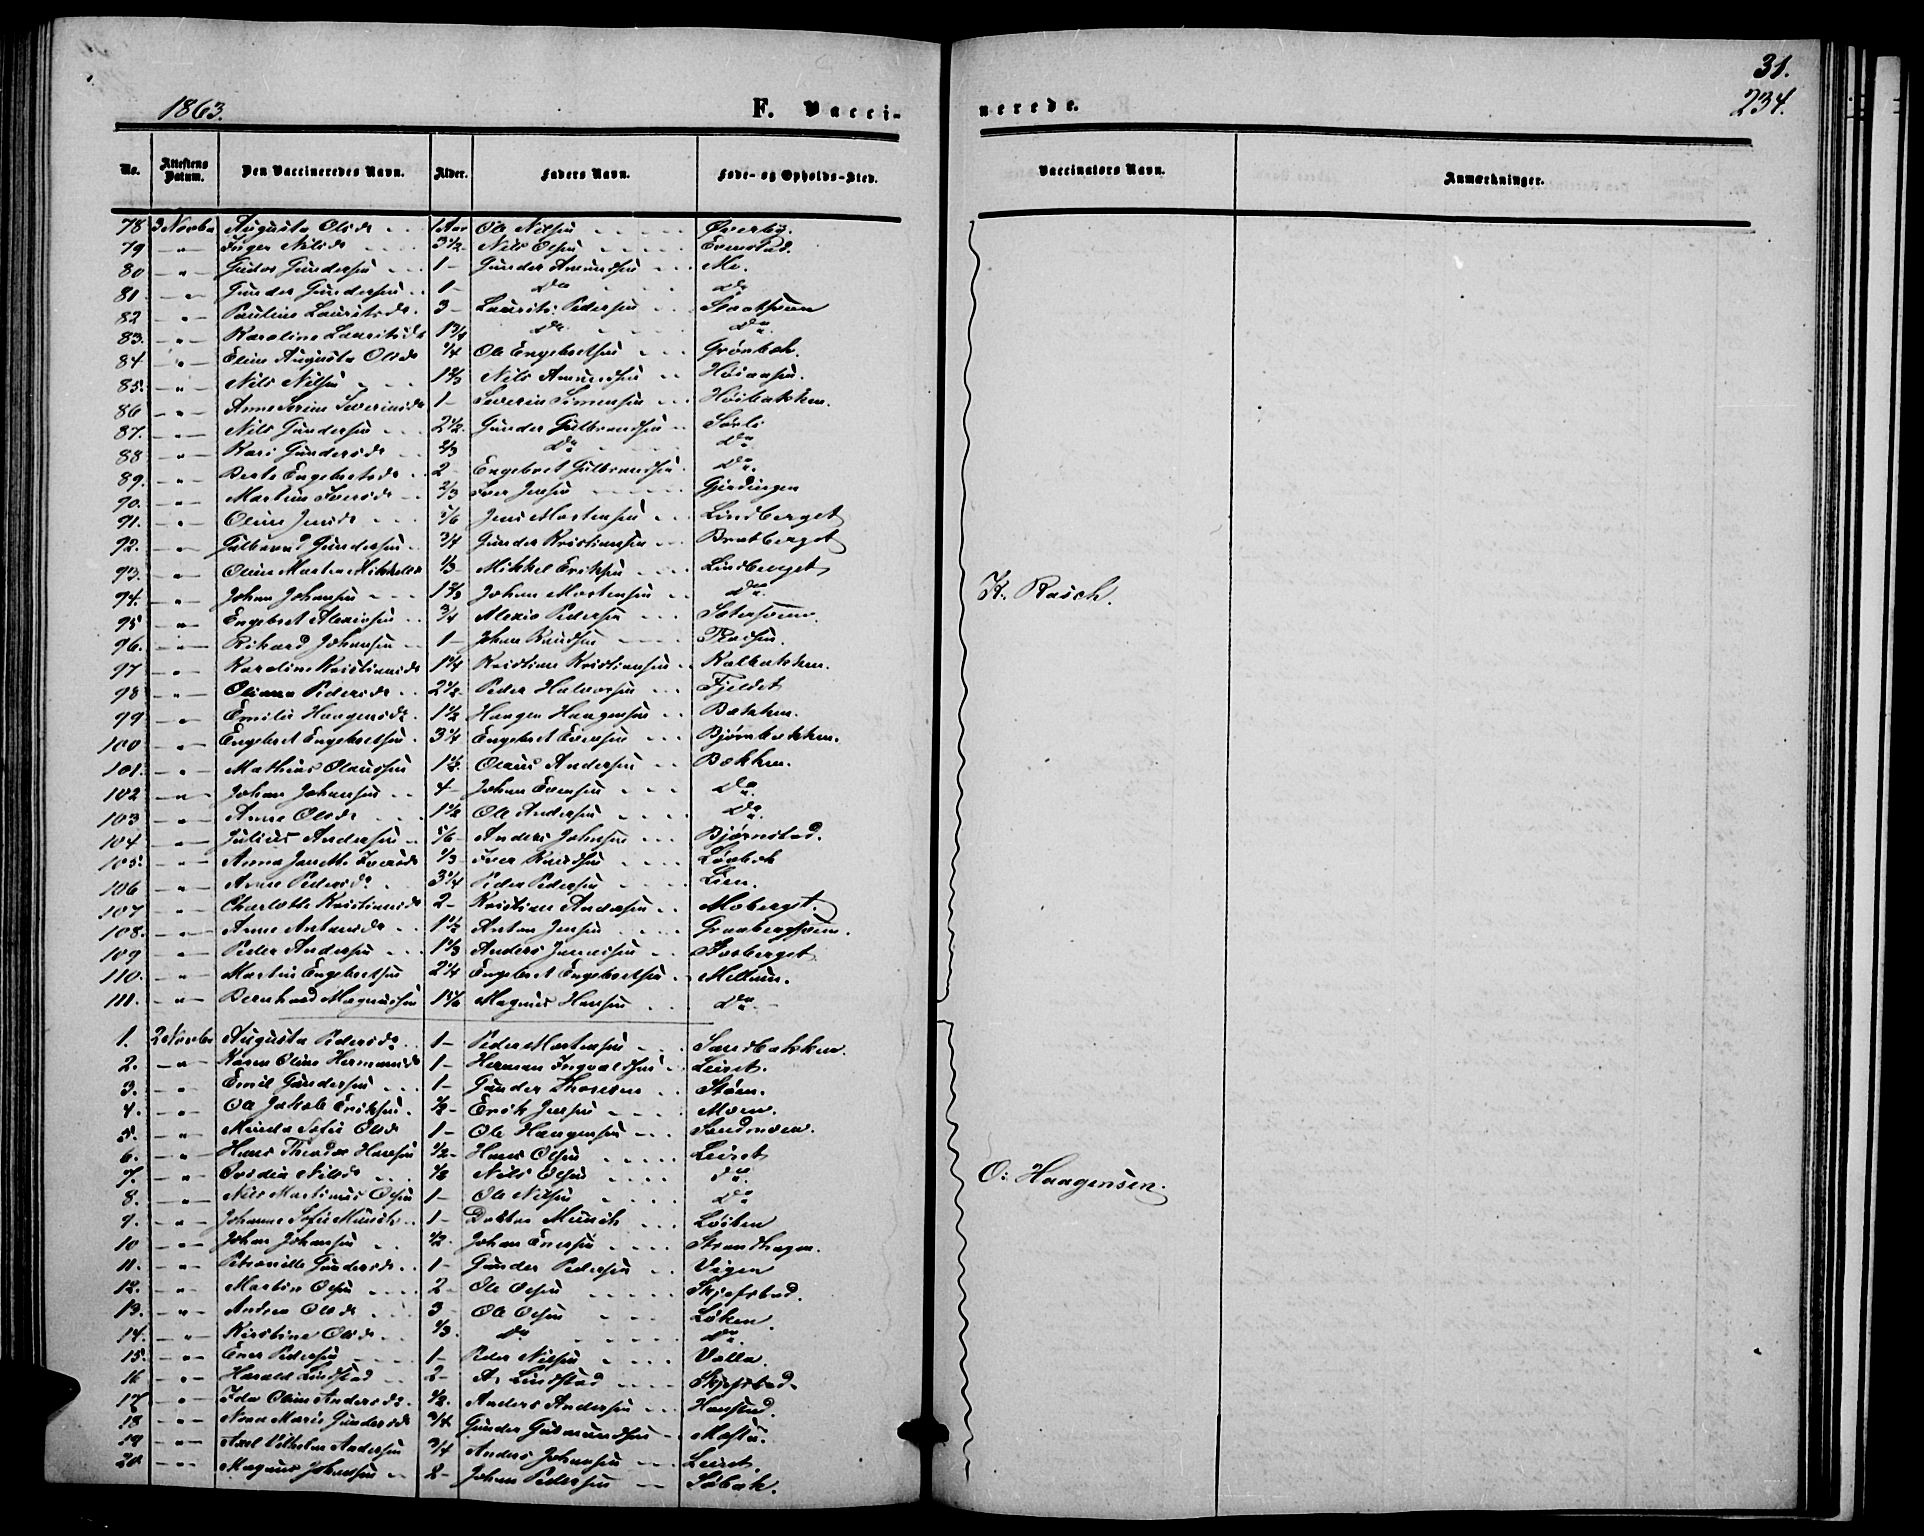 31.
234.
1863. F. Vacci- nerede.
No. Attestens Datum. Den Vaccineredes Navn. Alder. Faders Navn. Føde- og Opholds-Sted. Vaccinators Navn. Anmærkninger.
78 3 Novbr Augusta Olsdr 1 Aar Ole Nilsen Øverby.
79 " Inger Nilsdr 3 1/2 Nils Olsen Evenstad.
80 " Gudor Gundersen 1 - Gunder Amundsen Mo.
81. " Gunder Gundersen 1 - Do do
82 " Pauline Lauritsdr. 3 - Laurits Pedersen
83. " Karoline Lauritsdr 1 3/4 Do Do
84 " Eline Augusta Olsdr 1/4 Ole Engebretsen Grønbek.
85. " Nils Nilsen 1 2/3 Nils Amundsen
86 " Anne Serine Severinsdr 1 - Severin Simensen Høibakken.
87. " Nils Gundersen 2 1/2. Gunder Gulbrandsen Sorli
88 " Kari Gundersdr 2/3 Do Do
89. " Berte Engebretsdr 2 - Engebret Gulbrandsen Do.
90. " Martine Iversdr 2/3 Iver Jensen Gjerdingen
91. " Oline Jensdr 5/6 Jens Mortensen Lindberget
92. " Gulbrand Gundersen 3/4 Gunder Kristiansen Bratberget
93. " Oline Martea Mikkelsdr 1/3 Mikkel Eriksen Lindberget
94. " Johan Johansen 1 2/3 Johan Mortensen Do.
95 " Engebret Alexisen 3/4 Alexis Pedersen
96. " Rikard Johansen 1 - Johan Knudsen
97 " Karoline Kristiansdr 1 3/4 Kristian Kristiansen Kalbakken.
98 " Oliana Pedersdr 2 1/2 Peder Halvorsen Fjeldet
99 " Emilie Haagensdr. 1 1/2 Haagen Haagensen Bakken.
100 " Engebret Engebretsen. 3 1/4 Engebret Evensen Bjørnbakken.
101. " Mathias Olaussen 1 1/2. Olaus Andersen Bakken.
102 " Johan Johansen 4 - Johan Evensen Do
103 " Anne Olsdr 1 1/2 Ole Andersen Do.
104 " Julius Andersen 5/6 - Anders Johnsen Bjørnstad.
105. " Anna Janette Iversdr 1/3 - Iver Knudsen Løvbek
106 " Anne Pedersdr 3 1/4 Peder Pedersen Lien.
107 " Charlotte Kristiansdr 2 - Kristian Andersen Moberget.
108. " Anne Antonsdr 1 1/2 Anton Jensen
109 " Peder Andersen 1 1/3 Anders Jansen
110. " Martin Engebretsen 2 1/4 Engebret Engebretsen Mellum.
111. " Bernhard Magnussen 1 5/6 Magnus Hansen Do
K. Rasch.
1. 2 Novbr Augusta Pedersdr 1 - Peder Mortensen Sandbakken.
2. " Karen Oline Hermansdr 1 - Herman Ingvaldsen Leiret.
3. " Emil Gundersen 1 - Gunder Thoresen Støen.
4. " Ole Jakob Eriksen. 1/2 - Erik Jensen Moen.
5. " Minda Sofie Olsdr 1 - Ole Haagensen Sandmoen.
6. " Hans Theodor Hansen 1/2 - Hans Olsen Leiret
7. " Fredia Nilsdr 1/2 Nils Olsen Do.
8. " Nils Martinius Olsen 1 - Ole Nilsen Do
9. " Johanne Sofie Münch 1 - Doktor Münich Løiten
10 " Johan Johansen 1/2. Johan Enersen Strandhagen.
11. " Petronille Gundersdr 1 - Gunder Pedersen Vigen
12. " Martin Olsen 2 - Ole Olsen Skjefstad.
13. " Andrea Olsdr 3 - Ole Olsen Løken.
14. " Kirstine Olsdr 1/3. Do Do.
15. " Ener Pedersen 1 - Peder Nilsen Valla.
16 " Harald Lindstad 2 - A. Lindstad Skjefstad.
17 " Ida Oline Andersdr. 1/2. Anders Andersen Hansted.
18 " Nora Marie Gundersdr 3/4 Gunder Gudmundsen Mastu.
19 " Axel Vilhelm Andersen 3/4 Anders Johansen Leiret.
20 " Magnus Johansen 2 - Johan Pedersen Søbak.
O: Haagensen.